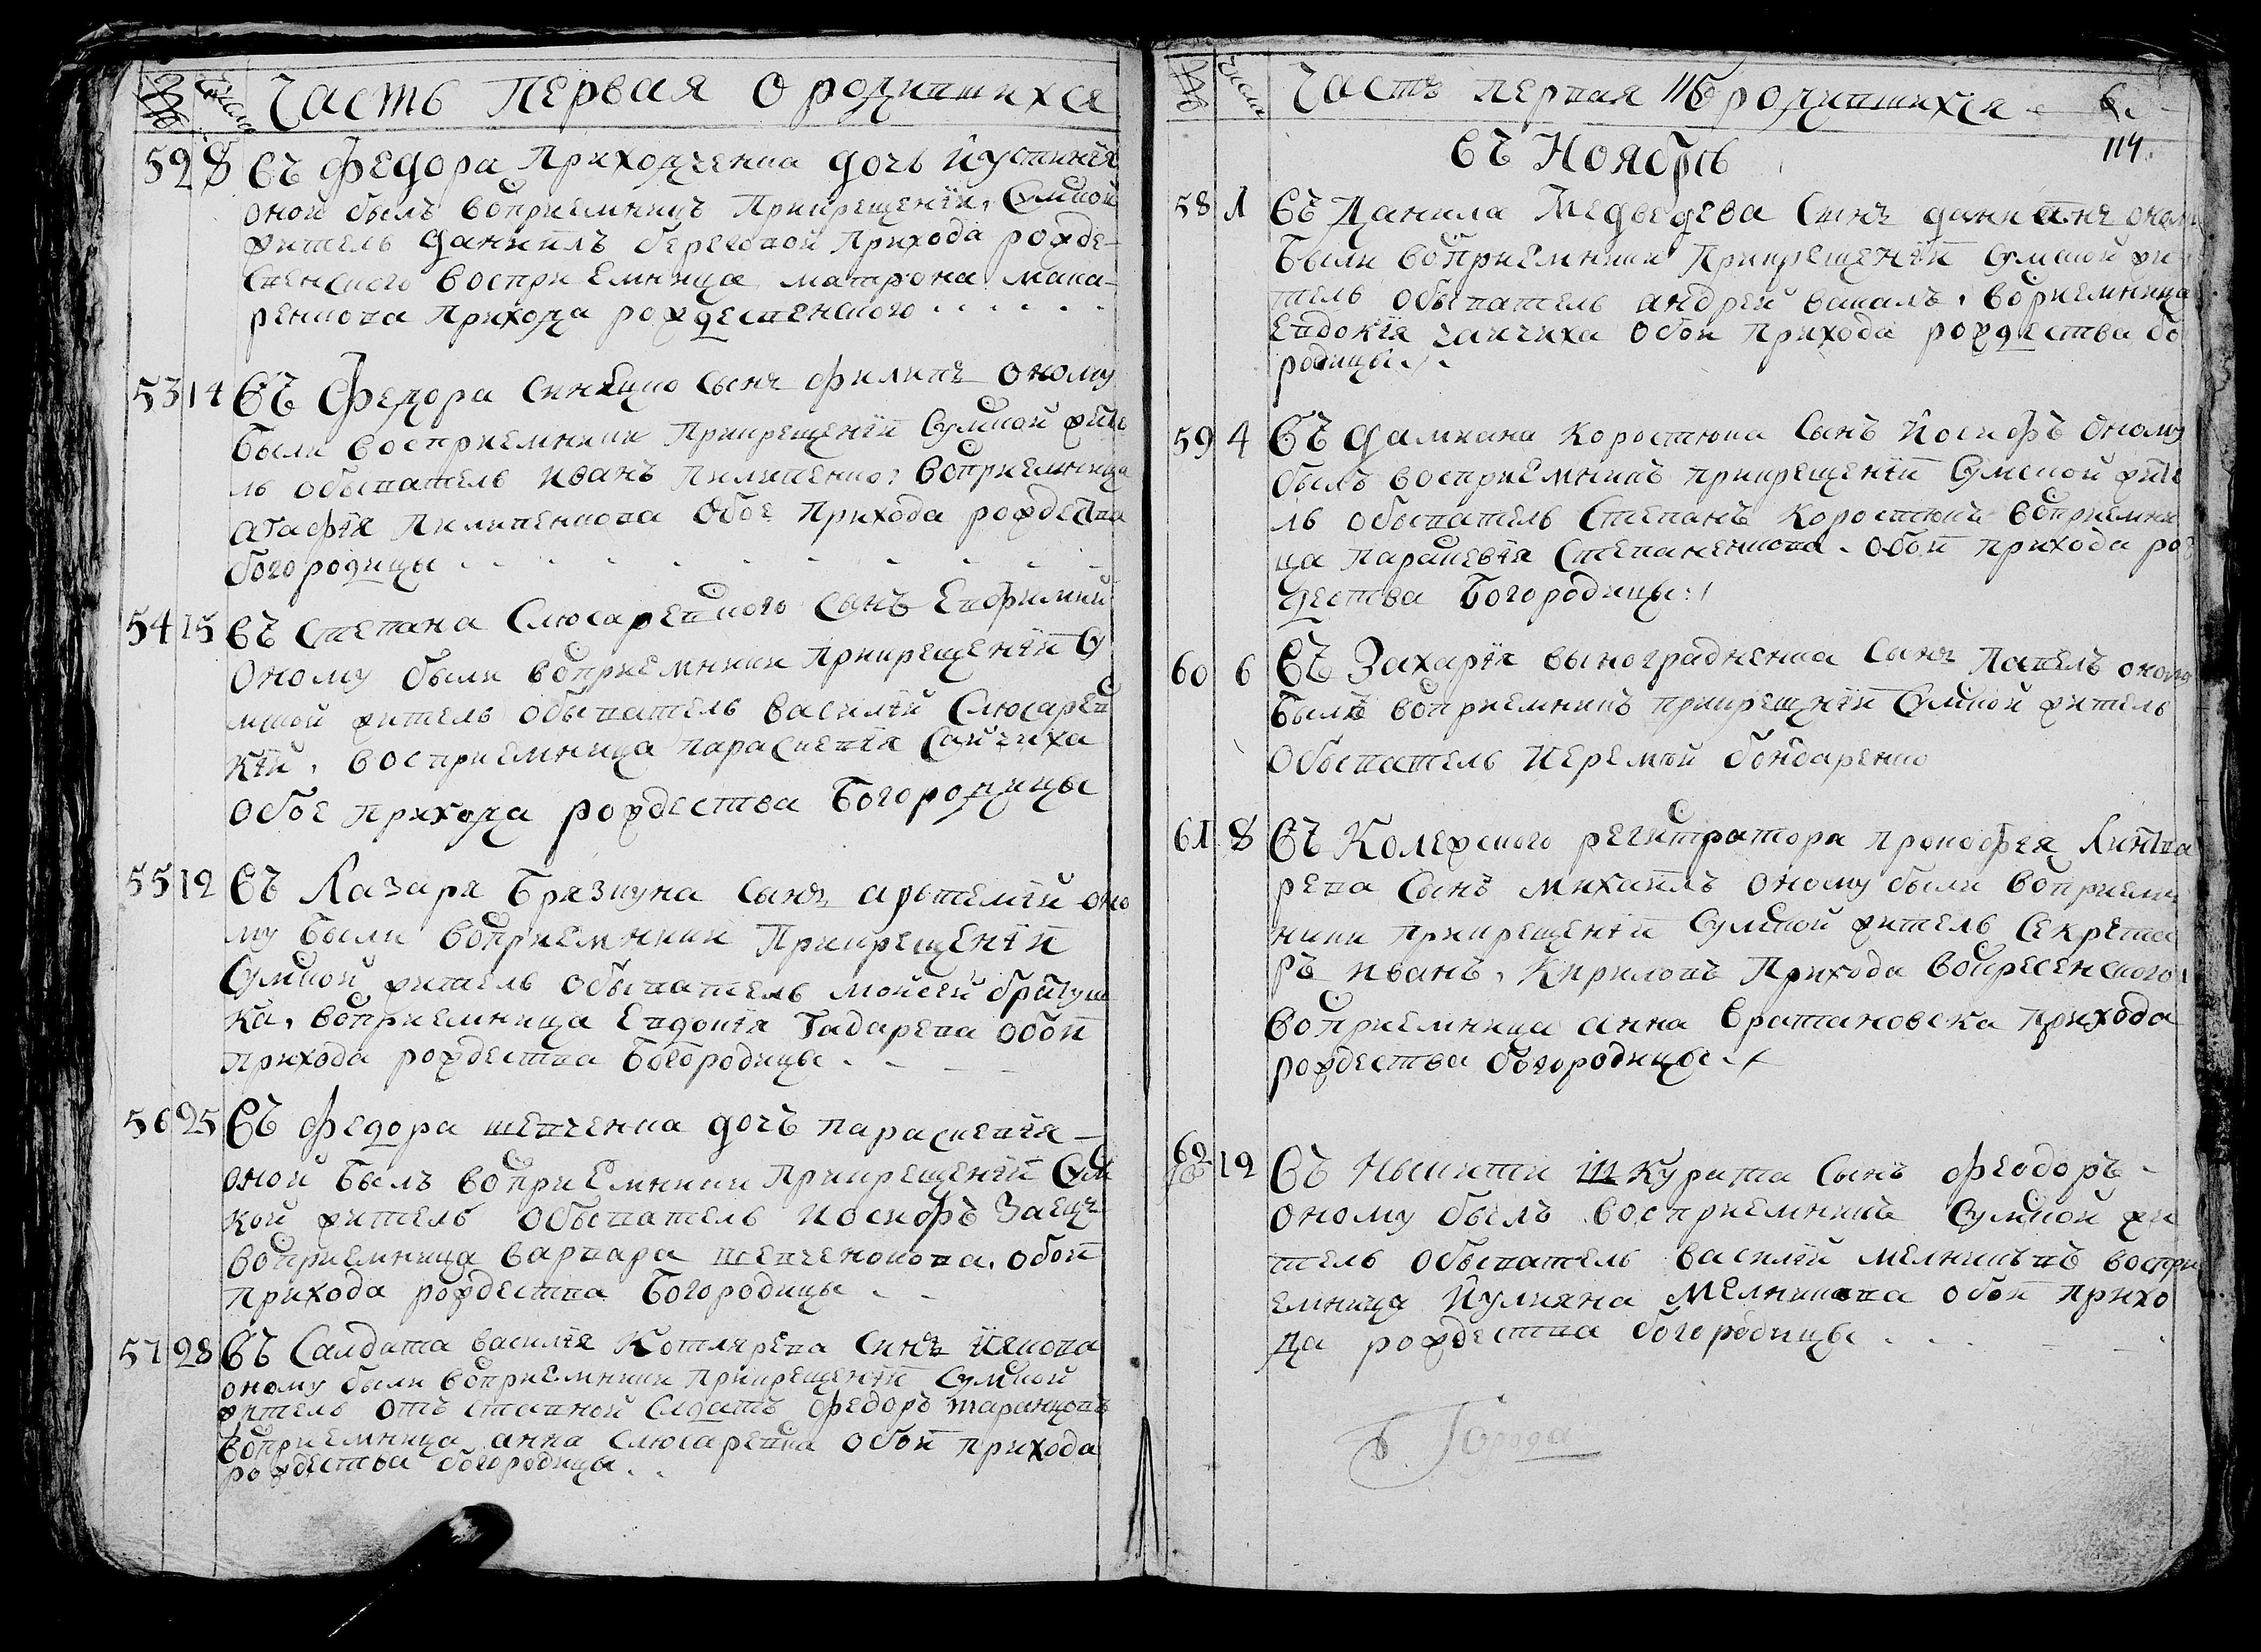 № Числа Часть Первая О родившихся
52 8 Въ Федора Приходченка дочь Иустинія
оной былъ воспріемникъ Прикрещеніи, Сумской
житель Даніилъ береговой Прихода рожде-
ственского воспріемница матрона мака-
ренкова Прихода рождественского
53 14 Въ Федора Синецко Сынъ филипъ оному
были воспріемники Прикрещеніи Сумской жите
ль обыватель иванъ Пилипенко: воспріемница
агафія Пилипенкова обое Прихода рождества
богородицы
54 15 Въ Степана Слюсаревского Сынъ Евфимий
Оному были воспріемники Прикрещеніи Су
мской житель обыватель василій Слюсарев
кій, воспріемница параскевія Сайчиха
Обое прихода рождества Богородицы
55 19 Въ Лазаря Брязкуна Сынъ арьтемій оно
му были воспріемники Прикрещеніи
Сумской житель обыватель мойсей бригуш
ка, воспріемница Евдокія Гадарева обои
прихода рождества Богородицы
56 25 Въ федора шевченка дочь параскевія
оной былъ воспріемники Прикрещеніи Сумс
кой житель обыватель иосифъ Заецъ
воспріемница варвара шевченкова. обои
прихода рождества Богородицы
57 28 Въ Салдата василія Котлярева Синъ Иякова
оному были воспріемники Прикрещеніи Сумской
житель отъ ставной Слдатъ федоръ таранцовъ
воспріемница анна слюсаревка обои прихода
рождества богородицы
№ Числа Часть первая О родившихся 6.
114.
Въ Ноябрѣ
58 1 Въ Данила Медведева Сынъ оному
Были воспріемники Прикрещеніи Сумской жи
тель обыватель андрей вакалъ, воспріемница
Евдокія заичиха обои прихода рождества бо
родицы
59 4 Въ дамиана Коростюка Сынъ иосифъ оному
былъ воспріемникъ прикрещеніи Сумской жите
ль обыватель Степанъ Коростюкъ воспріемни
ца параскевія Степаненкова. обои прихода рож
дества Богородицы
60 6 Въ Захарія выноградненка Сынъ Павелъ оному
былъ воспріемникъ прикрещеніи Сумской житель
Обыватель Иеремій бондаренко
61 8 Въ Колежского регистратора прокофея Линта
рева Сынъ михаилъ оному были воспріем
ники прикрещеніи Сумской житель Секрета
ръ иванъ, Кириловъ Прихода воскресенского
воспріемница анна братановска прихода
рождества богородицы
62 12 Въ Никити шкурата Сынъ феодоръ
оному былъ воспріемникъ Сумской жи
тель обыватель василій мелниковъ воспри
емница Иулияна Мелникова обои прихо
да рождества богородицы